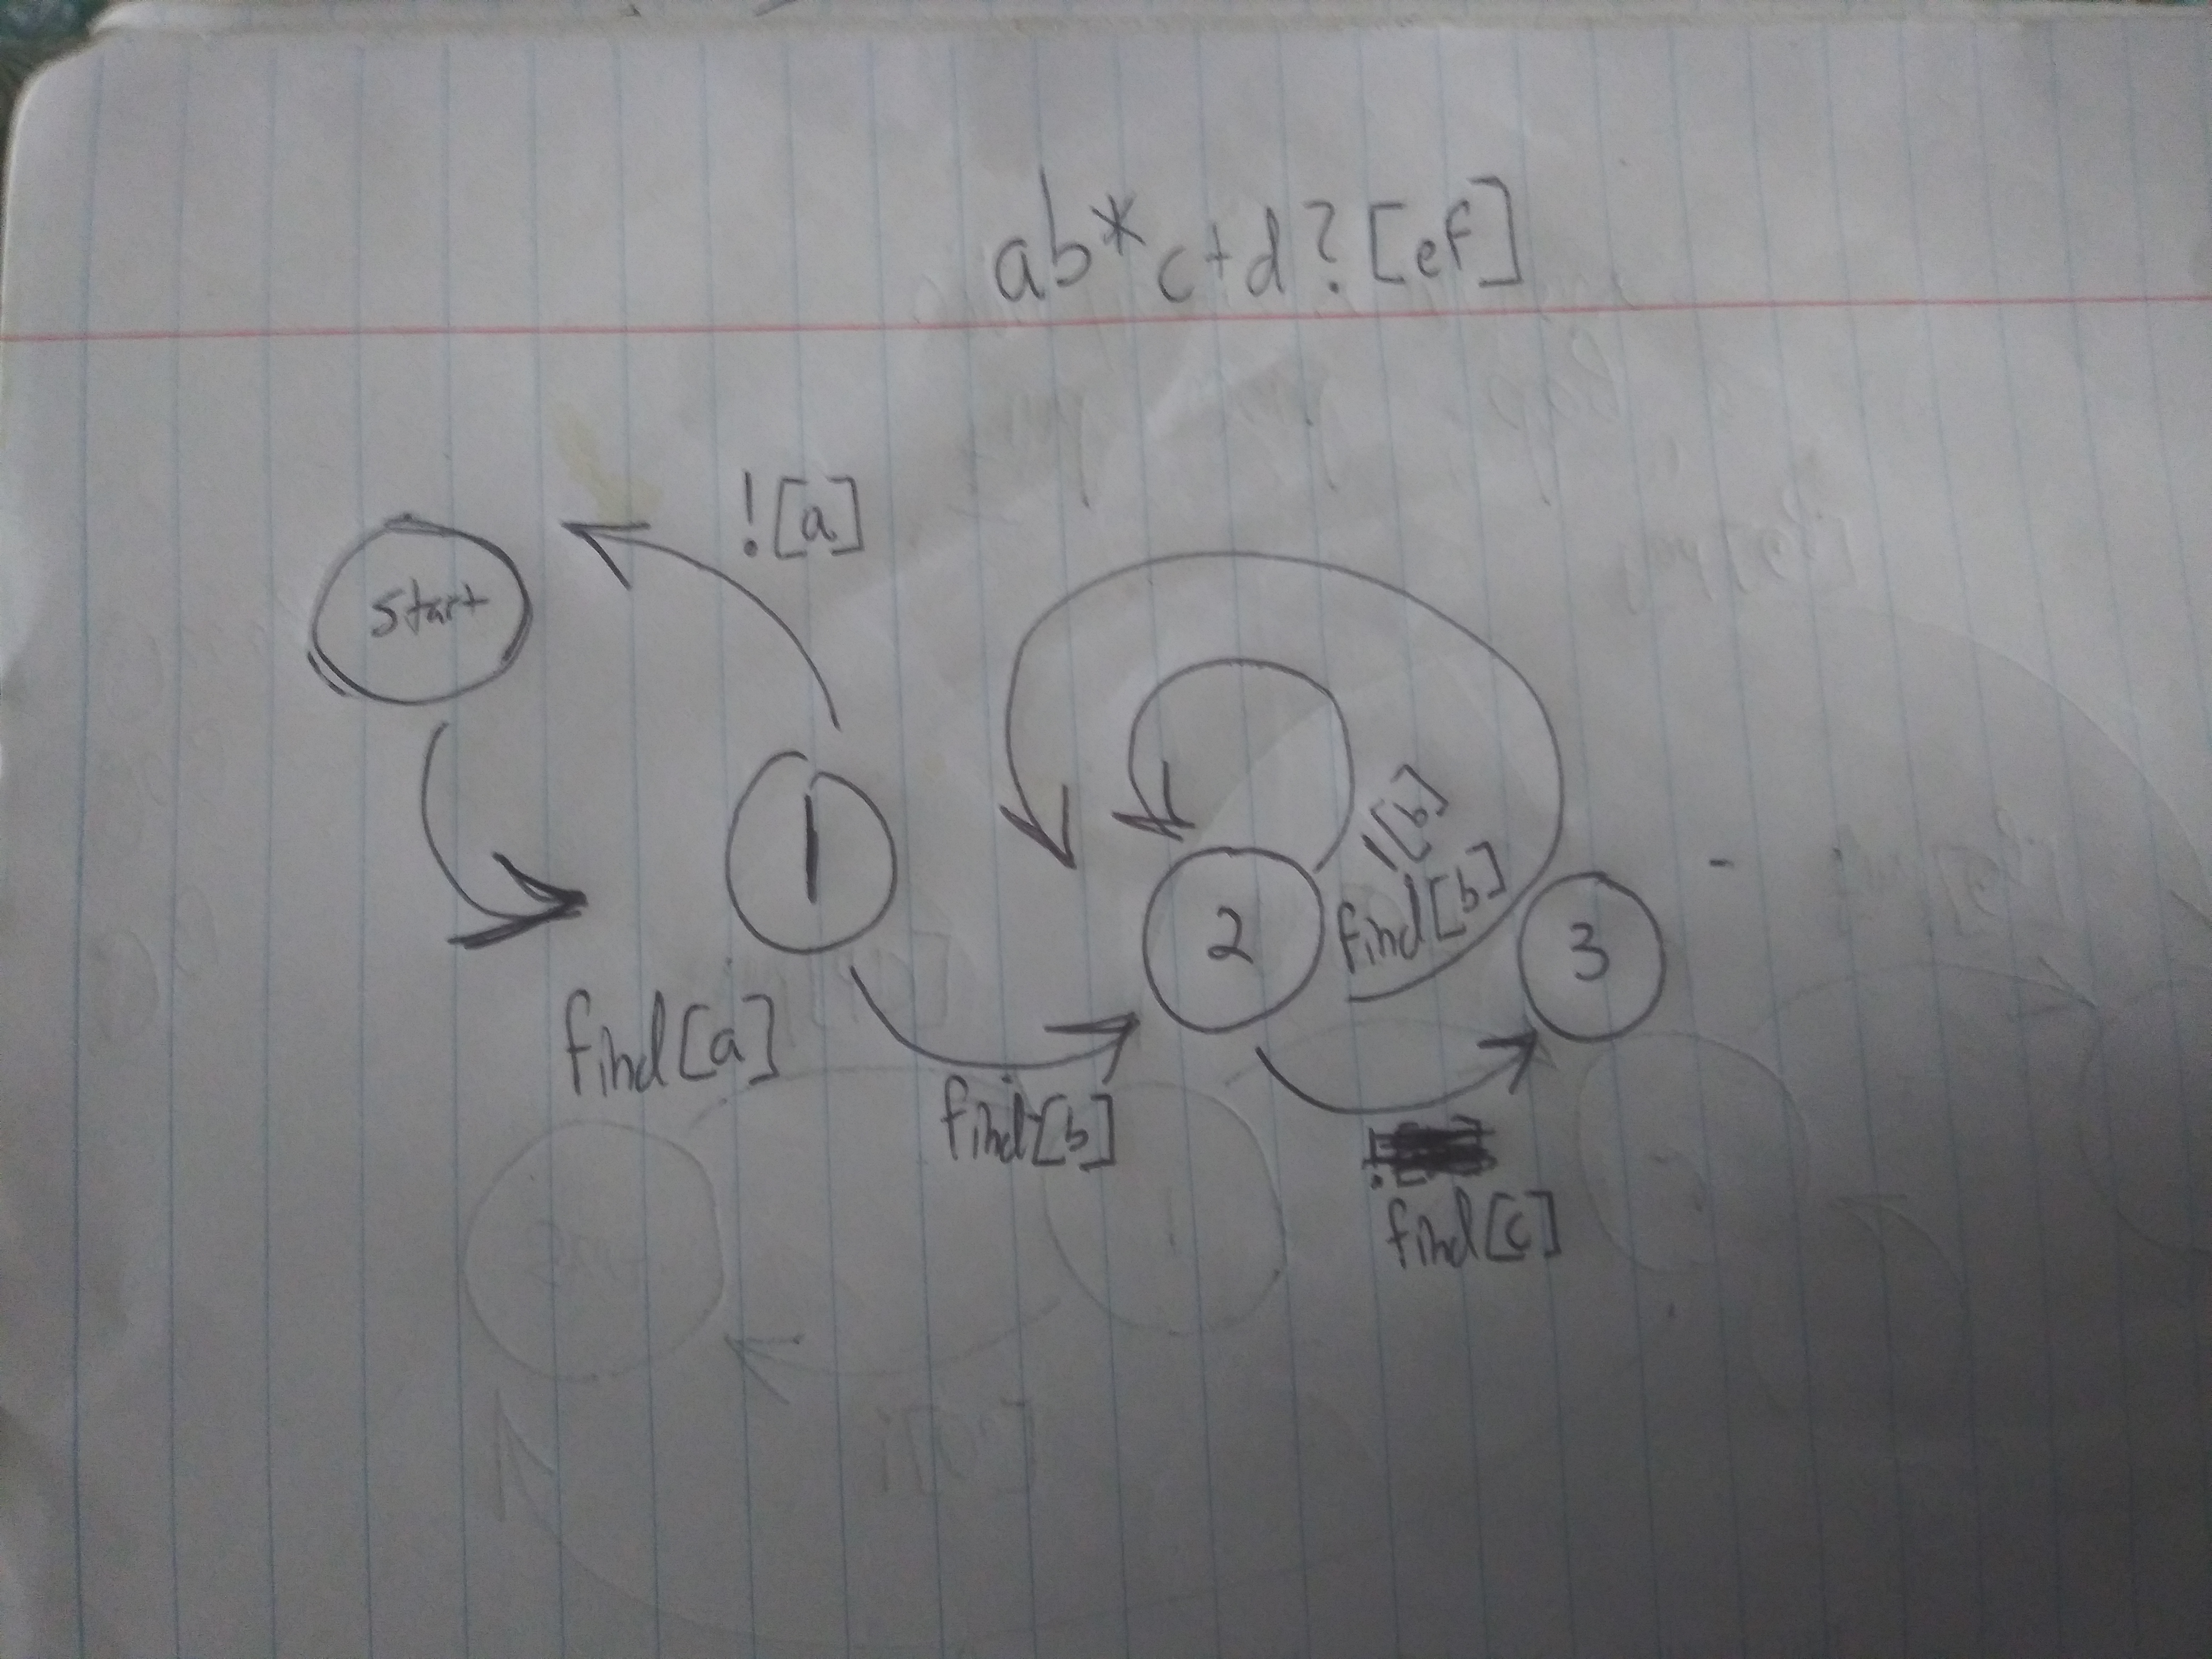 ab*c+d?[ef]
start
![a]
find[a]
1
find[b]
2
![b]
find[b]
find[c]
3